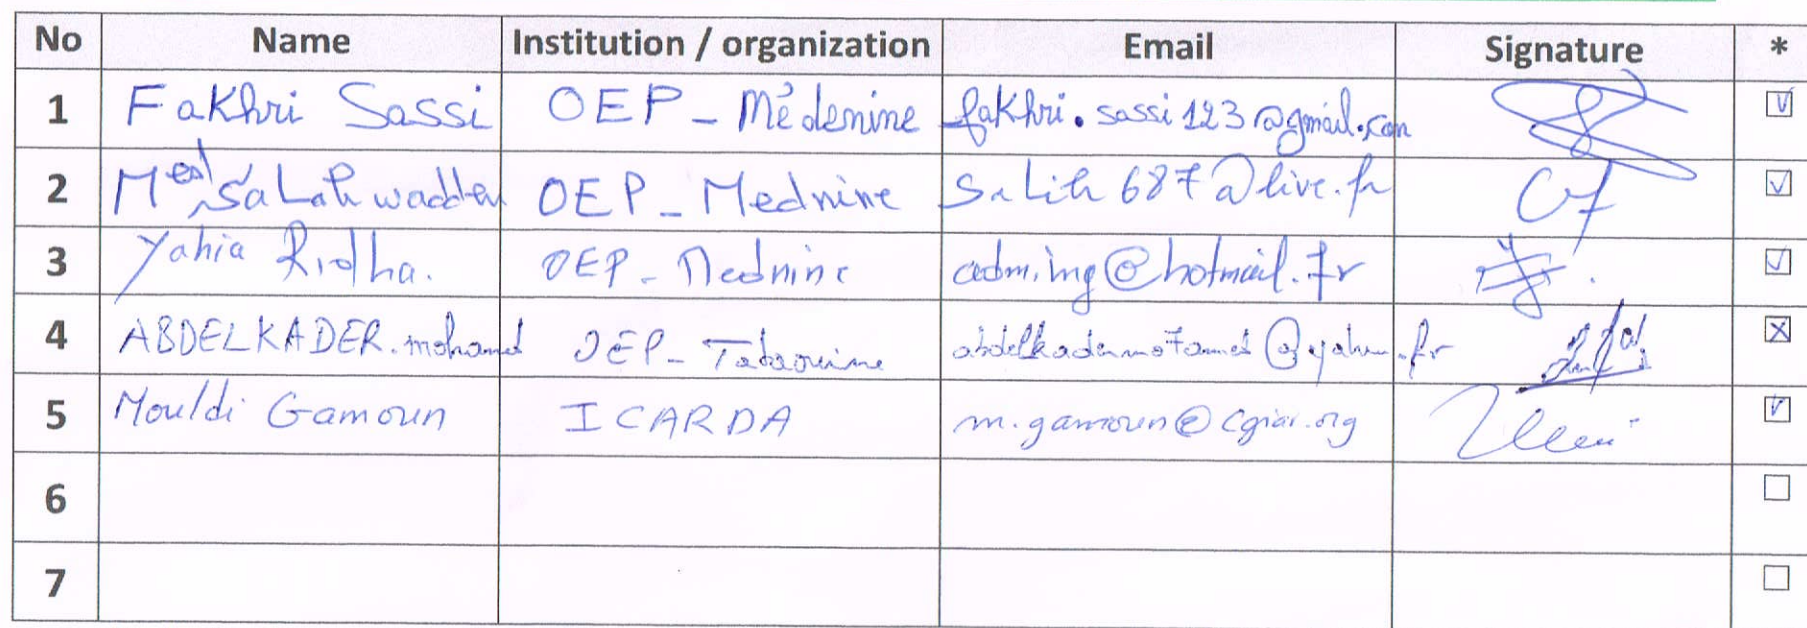 No Name Institution / organization Email Signature *
1 Fakhri Sassi OEP - Médenine fakhri.sassi123@gmail.com
2 Med Salah OEP - Mednine Salih687@live.fr
3 Yahia Ridha. OEP - Mednine adm.ing@hotmail.fr
4 ABDELKADER.mohamed OEP - Tataouine
5 Mouldi Gamoun ICARDA m.gamoun@cgiar.org
6
7